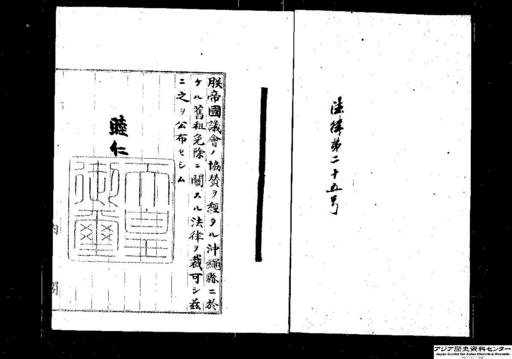 法律第二十五号
朕帝國議會ノ協賛ヲ經タル沖繩縣ニ於
ケル舊租免除ニ關スル法律ヲ裁可シ茲
ニ之ヲ公布セシム
睦仁
天皇御璽
内閣
アジア歴史資料センター
Japan Center for Asian Historical Records